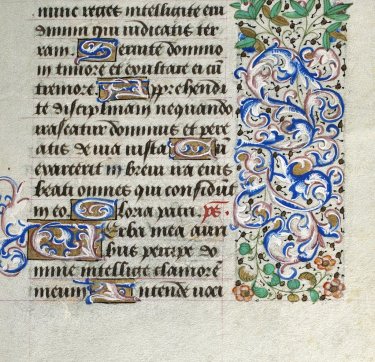 nunc reges intelligite eru
dimini qui iudicatis ter
ram. Seruite domino
in timore et exultate ei cū
tremore. Apprehendi
te disciplinam nequando
irascatur dominus et pere
atis de uia iusta. Cū
exarserit in breui ira eius
beati omnes qui confidunt
in eo. Gloria patri. ps̄.
Uerba mea auri
bus percipe do
mine intellige clamorē
meum. Intende uoci